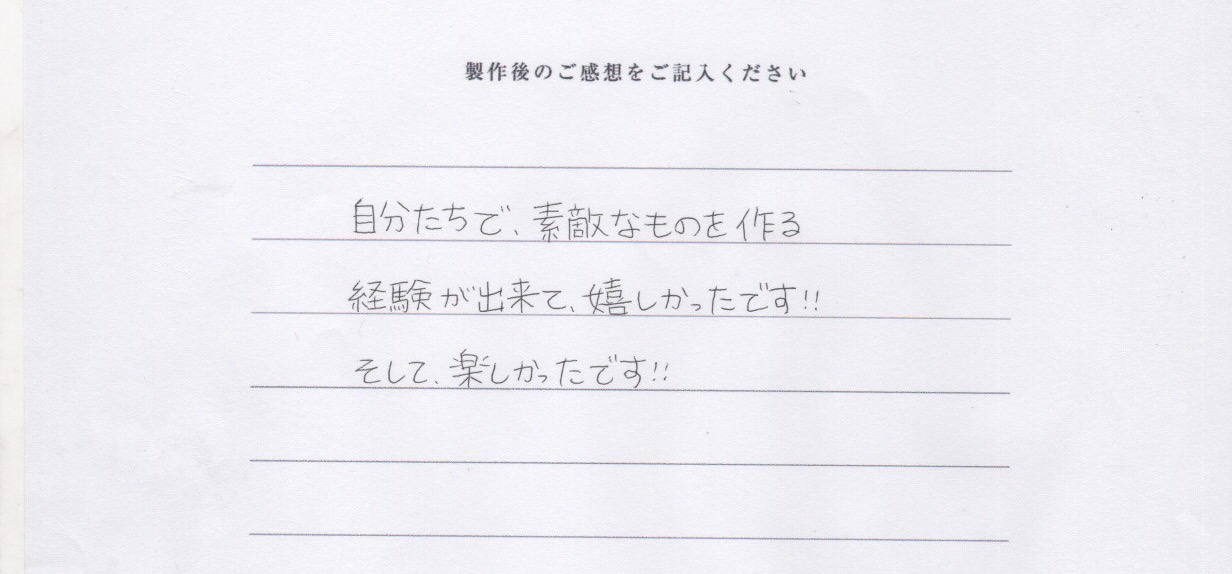 製作後のご感想をご記入ください
自分たちで、素敵なものを作る
経験が出来て、嬉しかったです!!
そして、楽しかったです!!